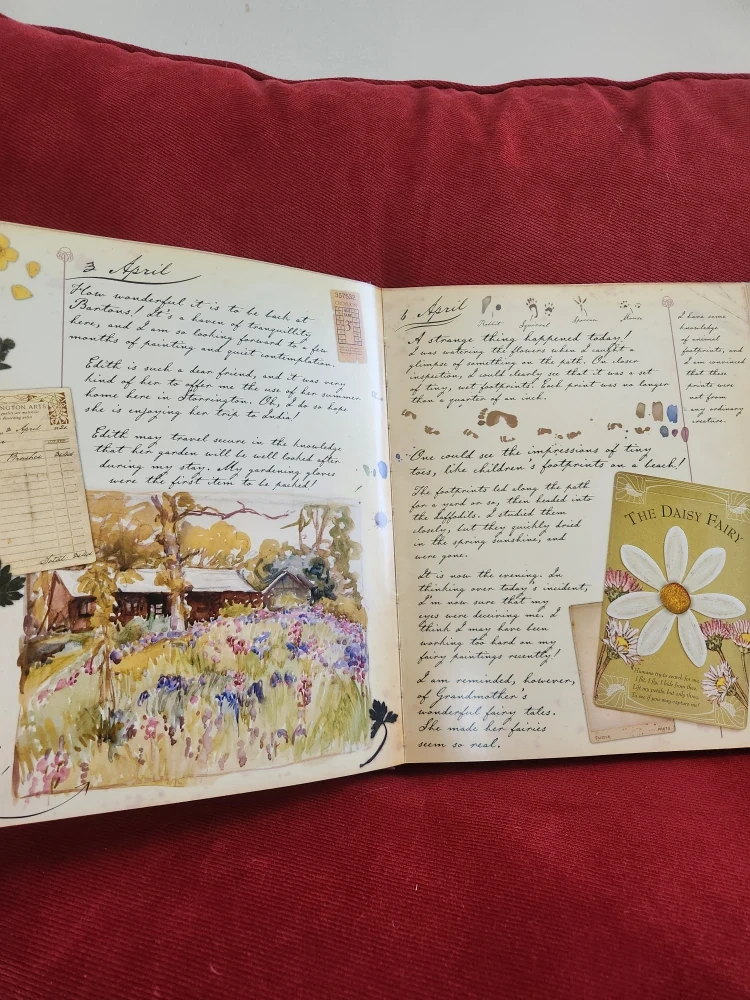 3 April
How wonderful it is to be back at
Bartons! It's a haven of tranquillity
here, and I am so looking forward to a few
months of painting and quiet contemplation.
Edith is such a dear friend, and it was very
kind of her to offer me the use of her summer
home here in Storrington. Oh, I do so hope
she is enjoying her trip to India!
Edith may travel secure in the knowledge
that her garden will be well looked after
during my stay. My gardening gloves
were the first item to be packed!
INGTON ARTS
April
Brushes
Total
6 April
Rabbit
Squirrel
Sparrow
Mouse
A strange thing happened today!
I was watering the flowers when I caught a
glimpse of something on the path. On closer
inspection, I could clearly see that it was a set
of tiny, wet footprints! Each print was no longer
than a quarter of an inch.
I have some
knowledge
of animal
footprints, and
I am convinced
that these
prints were
not from
any ordinary
creature.
One could see the impressions of tiny
toes, like children's footprints on a beach!
The footprints led along the path
for a yard or so, then headed into
the daffodils. I studied them
closely, but they quickly dried
in the spring sunshine, and
were gone.
It is now the evening. In
thinking over today's incident,
I'm now sure that my
eyes were deceiving me. I
think I may have been
working too hard on my
fairy paintings recently!
I am reminded, however,
of Grandmother's
wonderful fairy tales.
She made her fairies
seem so real.
THE DAISY FAIRY
try to search for me,
I flit, I fly, I hide from thee.
Lift my petals, but only three,
To see if you may capture me!